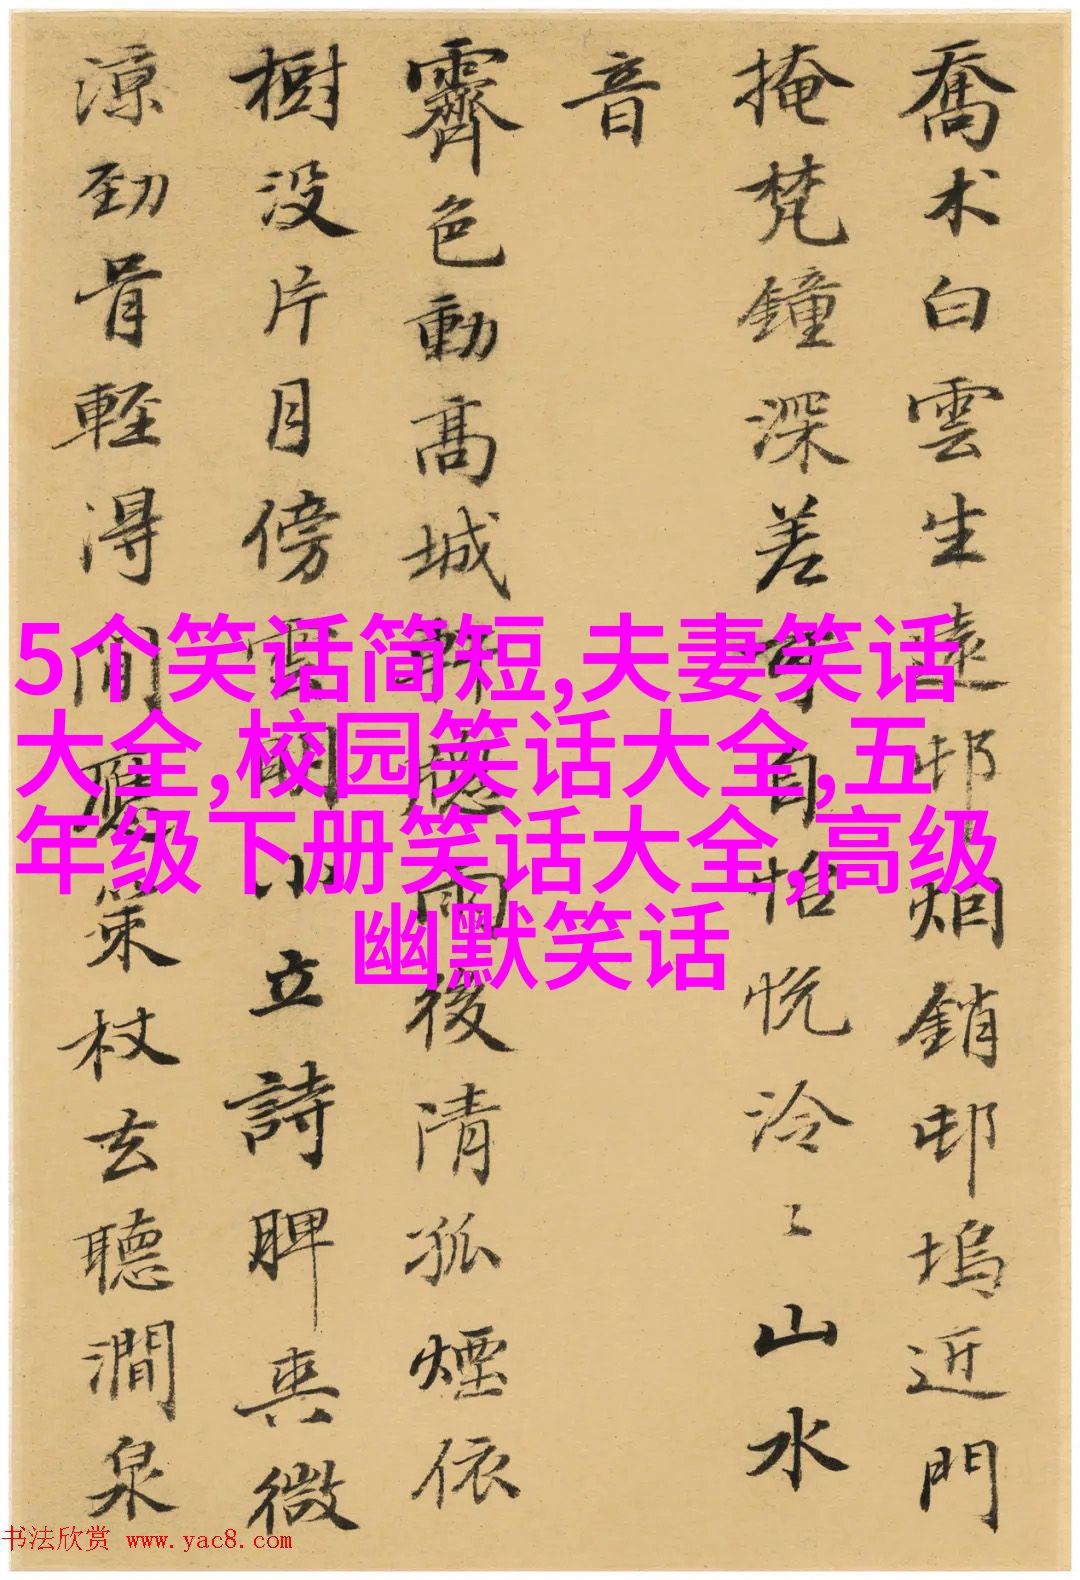 喬木白雲生遠邨烟銷邨塢近門
掩梵鐘深差可自怡悦泠〻山水
音
霽色動高城軒窓雨後清孤煙依
樹没片月傍雲明小立詩脾爽微
涼勁骨輕得閒應策杖去聽澗泉
5个笑话简短,夫妻笑话
大全,校园笑话大全,五
年级下册笑话大全,高级
幽默笑话
书法欣赏 www.yac8.com